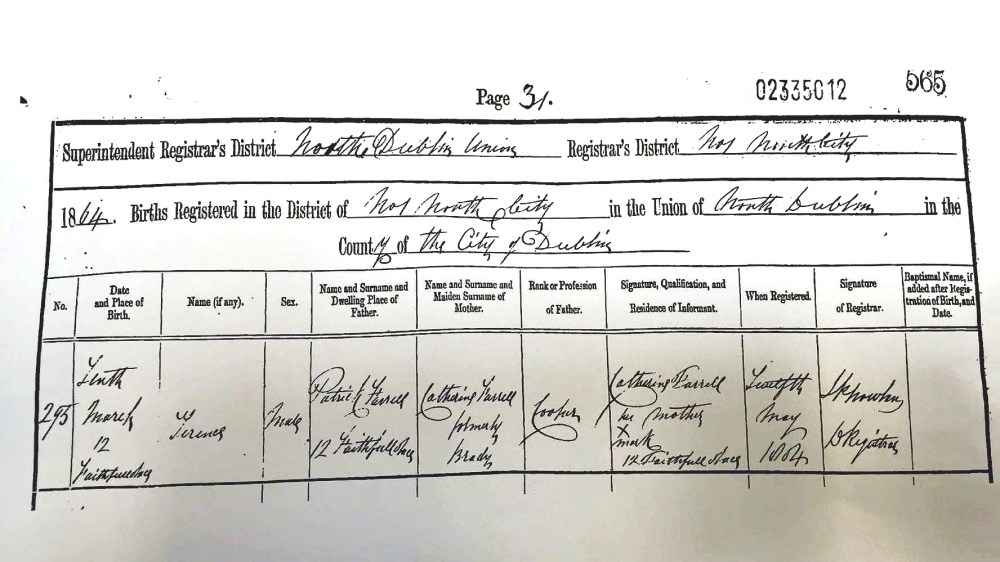 Page 31.
02335012
565
Superintendent Registrar's District North Dublin Union Registrar's District No1 North City
1864. Births Registered in the District of No1 North City in the Union of North Dublin in the
County of the City of Dublin
No. Date and Place of Birth. Name (if any). Sex. Name and Surname and Dwelling Place of Father. Name and Surname and Maiden Surname of Mother. Rank or Profession of Father. Signature, Qualification, and Residence of Informant. When Registered. Signature of Registrar. Baptismal Name, if added after Registration of Birth, and Date.
295
Tenth
March
12
Faithfull Place
Terence
Male
Patrick Farrell
12 Faithfull Place
Catherine Farrell
formerly
Brady
Cooper
Catherine Farrell
her mother
X
mark
12 Faithfull Place
Twelfth
May
1864
D Registrar